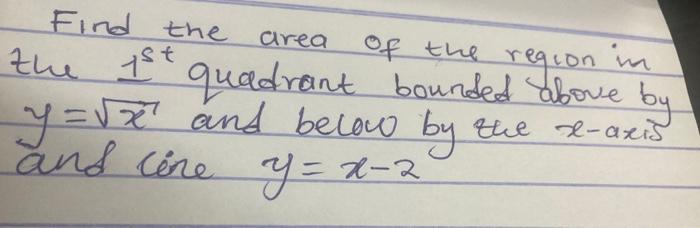 Find the area of the region in
the 1st quadrant bounded above by
y = √x and below by the x-axis
and line y = x - 2